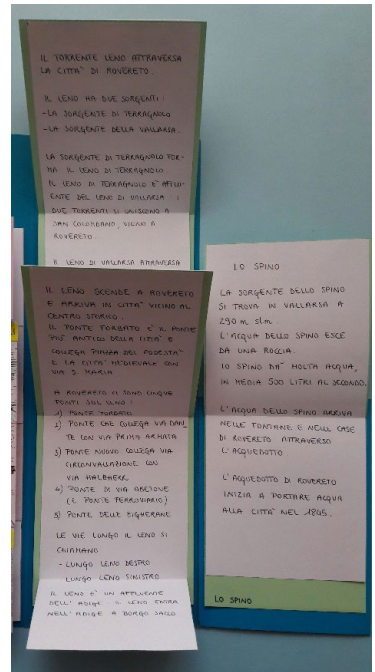 IL TORRENTE LENO ATTRAVERSA
LA CITTA' DI ROVERETO
IL LENO HA DUE SORGENTI:
- LA SORGENTE DI TERRAGNOLO
- LA SORGENTE DELLA VALLARSA.
LA SORGENTE DI TERRAGNOLO FOR-
MA IL LENO DI TERRAGNOLO
IL LENO DI TERRAGNOLO E' AFFLU-
ENTE DEL LENO DI VALLARSA: I
DUE TORRENTI SI UNISCONO A
SAN COLOMBANO, VICINO A
ROVERETO.
IL LENO DI VALLARSA ATTRAVERSA
IL LENO SCENDE A ROVERETO
E ARRIVA IN CITTA' VICINO AL
CENTRO STORICO.
IL PONTE FORBATO E' IL PONTE
PIU' ANTICO DELLA CITTA' E
COLLEGA PIAZZA DEL PODESTA'
E LA CITTA' MEDIEVALE CON
VIA S. MARIA
A ROVERETO CI SONO CINQUE
PONTI SUL LENO:
1) PONTE FORBATO
2) PONTE CHE COLLEGA VIA DAN
TE CON VIA PRIMA ARMATA
3) PONTE NUOVO COLLEGA VIA
CIRCONVALLAZIONE CON
VIA HALBHERR
4) PONTE DI VIA ABETONE
(E PONTE FERROVIARIO)
5) PONTE DELLE ZIGHERANE
LE VIE LUNGO IL LENO SI
CHIAMANO
- LUNGO LENO DESTRO
LUNGO LENO SINISTRO
IL LENO E' UN AFFLUENTE
DELL'ADIGE. IL LENO ENTRA
NELL'ADIGE A BORGO SACCO
LO SPINO
LA SORGENTE DELLO SPINO
SI TROVA IN VALLARSA A
290 m slm.
L'ACQUA DELLO SPINO ESCE
DA UNA ROCCIA.
LO SPINO DA' MOLTA ACQUA,
IN MEDIA 500 LITRI AL SECONDO.
L'ACQUA DELLO SPINO ARRIVA
NELLE FONTANE E NELLE CASE
DI ROVERETO ATTRAVERSO
L'ACQUEDOTTO
L'ACQUEDOTTO DI ROVERETO
INIZIA A PORTARE ACQUA
ALLA CITTA' NEL 1845.
LO SPINO